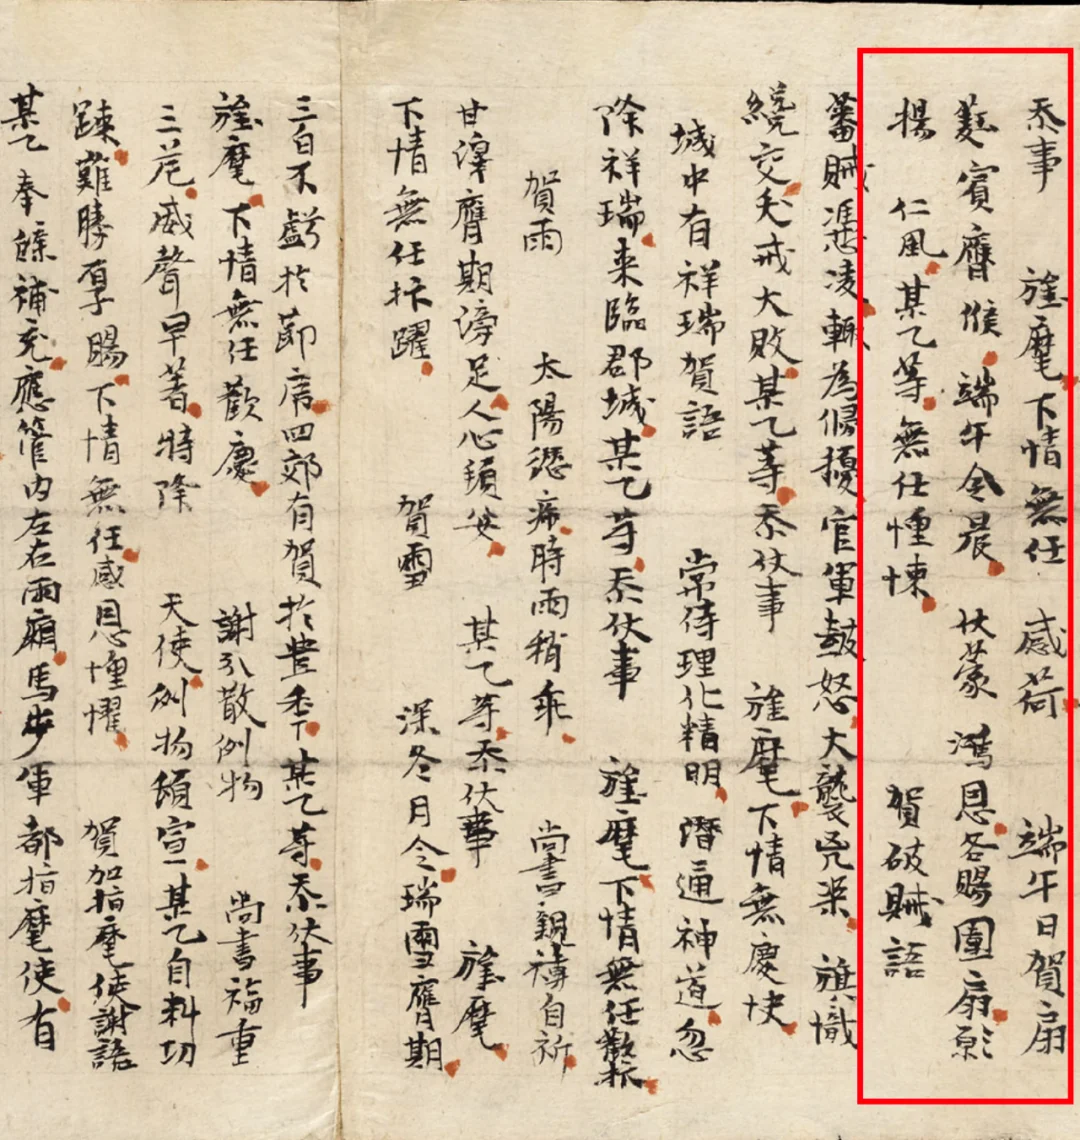 忝事 旌麾下情無任 感荷 端午日賀扇
蕤賓膺候端午令晨 伏蒙 鴻恩各賜團扇願
揚 仁風某乙等無任惶悚 賀破賊語
蕃賊憑凌輙為侵擾官軍皷怒大襲兇渠 旗幟
纔交犬戎大敗某乙等忝伏事 旌麾下情無慶快
城中有祥瑞賀語 常侍理化精明潛通神道忽
降祥瑞来臨郡城某乙等忝伏事 旌麾下情無任歡抃
賀雨 太陽愆亢時雨稍乖 尚書親禱自祈
甘澤膺期滂足人心頓安 某乙等忝伏事 旌麾
下情無任抃躍 賀雪 深冬月令瑞雪膺期
三白不虧於節序四郊有賀於豊年某乙等忝伏事
旌麾下情無任歡慶 謝 散例物 尚書福重
三 威聲早著特降 天使例物頒宣某乙自料功
踈難勝厚賜下情無任感恩惶懼 賀加指麾使謝語
某乙奉 補充應管内左右兩廂馬步軍都指麾使有